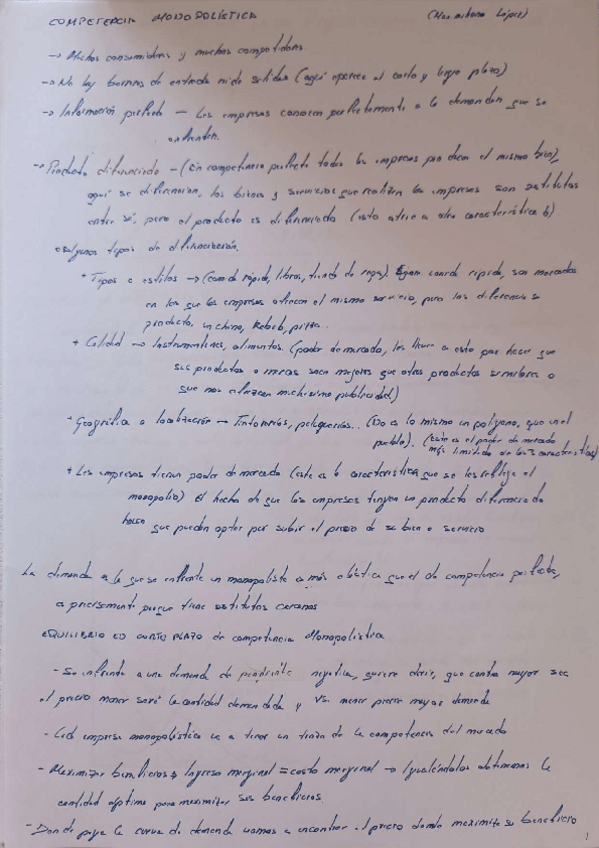 COMPETENCIA MONOPOLÍSTICA (Maximiliano López)
→ Muchos consumidores y muchos competidores.
→ No hay barreras de entrada ni de salida (aquí aparece el corto y largo plazo)
→ Información perfecta — Las empresas conocen perfectamente a la demanda a la que se
enfrentan.
→ Producto diferenciado – (En competencia perfecta todas las empresas producen el mismo bien),
aquí se diferencian, los bienes y servicios que realizan las empresas son sustitutos
entre sí, pero el producto es diferenciado (esto atrae a otra característica b)
Algunos tipos de diferenciación.
* Tipos o estilos → (comida rápida, libros, tienda de ropa). comida rápida, son mercados
en los que las empresas ofrecen el mismo servicio, pero los diferencia su
producto, un chino, Kebab, pizza..
+ Calidad → Instrumentales, alimentos. (poder de mercado, les lleva a esto por hacer que
sus productos o marcas sean mejores que otros productos similares o
que nos ofrezcan muchísimo publicidad)
* Geográfica o localización → Tintorerías, peluquerías.. (No es lo mismo un polígono, que en el
pueblo). (este es el poder de mercado
más limitado de las 3 características)
+ Las empresas tienen poder de mercado (esta es la característica que se les refleja el
monopolio) El hecho de que las empresas tengan un producto diferenciado
hace que puedan optar por subir el precio de su bien o servicio
La demanda a la que se enfrenta un monopolista es más elástica que el de competencia perfecta,
precisamente porque tiene sustitutos cercanos
EQUILIBRIO EN CORTO PLAZO de competencia Monopolística
- Se enfrenta a una demanda de pendiente negativa, quiere decir, que cuanto mayor sea
el precio menor será la cantidad demandada y vs. menor precio mayor demanda
- Cada empresa monopolística va a tener un trozo de la competencia del mercado
- Maximizar beneficios → Ingreso marginal = costo marginal → Igualándolos obtenemos la
cantidad óptima para maximizar sus beneficios.
- Donde pega la curva de demanda vamos a encontrar el precio donde maximiza su beneficio
1